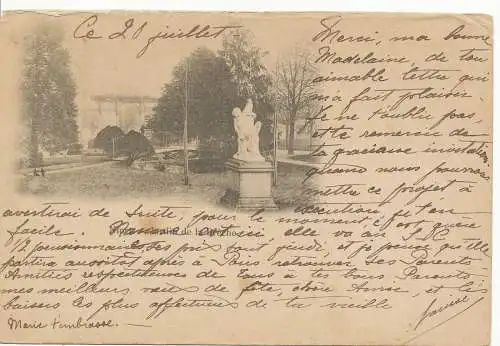 Ce 28 juillet
Merci, ma bonne
Madelaine, de ton
aimable lettre qui
m'a fait plaisir.
Je ne t'oublie pas,
et te remercie de
ta gracieuse invitation
quand nous pourrons
mettre ce projet à
exécution, je t'en
avertirai de suite, pour le moment, ce n'est guère
facile. elle va à
12 pensionnaires ses prix sont jeudi et je pense qu'elle
partira aussitôt après à Paris retrouver ses Parents
Amitiés respectueuses de tous à tes bons Parents
mes meilleurs vœux de fête, chère Amie, et les
baisers les plus affectueux de ta vieille
Marie t'embrasse.